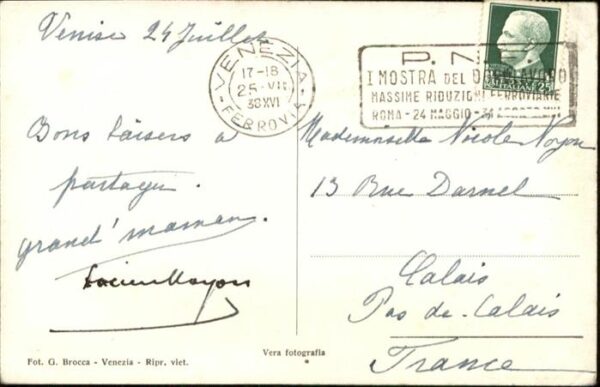 Venise 24 Juillet
VENEZIA
17-18
25 · VII
38 XVI
FERROVIA
P.N.F.
I MOSTRA DEL DOPOLAVORO
MASSIME RIDUZIONI FERROVIARIE
ROMA - 24 MAGGIO -
Bons baisers à
partager.
grand'maman.
Lucien Noyon
Mademoiselle Nicole Noyon
13 Rue Darnel
Calais
Pas-de-Calais
France
Fot. G. Brocca - Venezia - Ripr. viet.
Vera fotografia